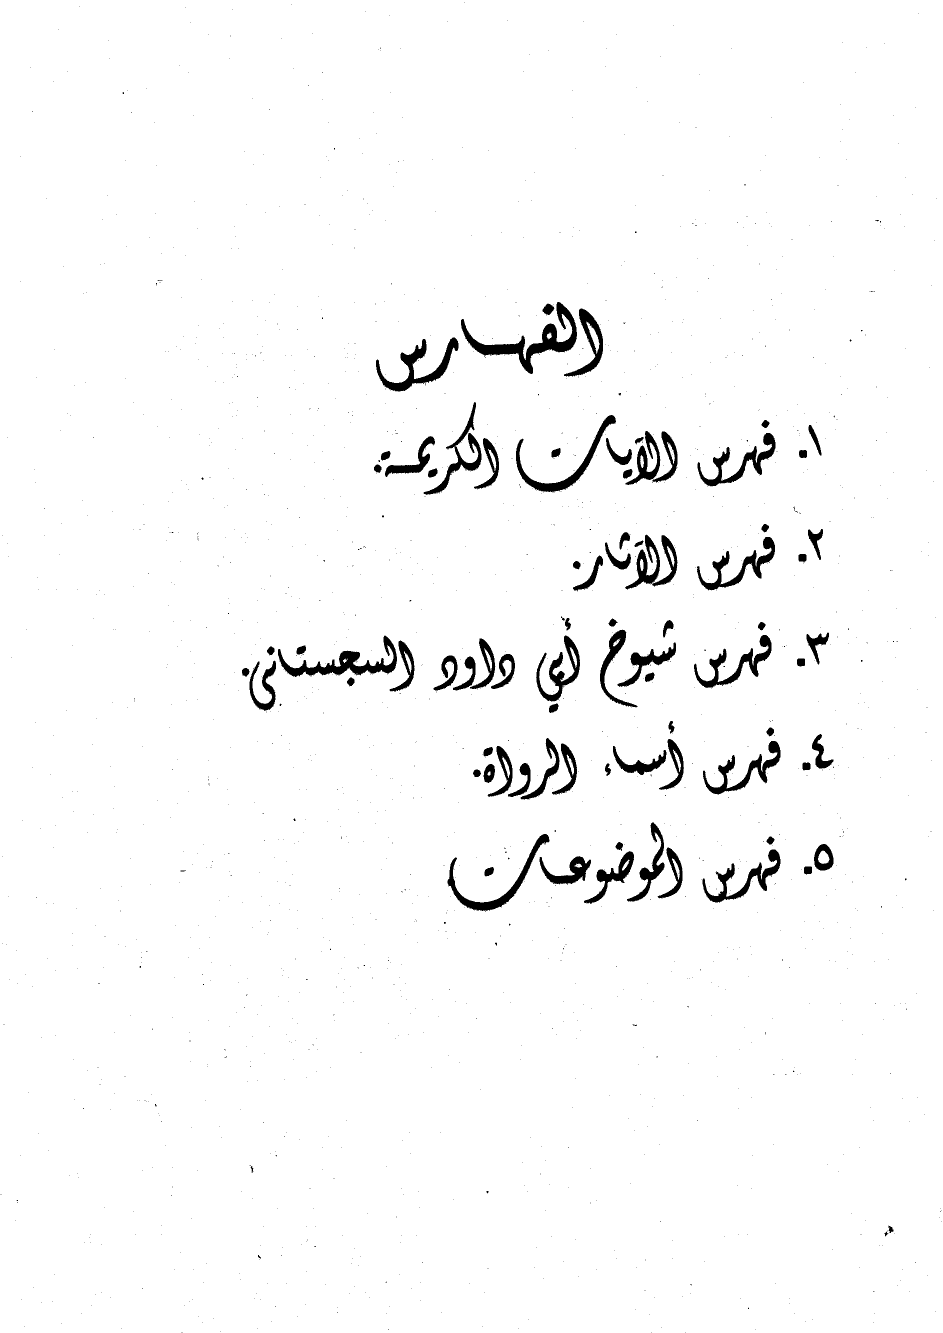 الفهارس
١. فهرس الآيات الكريمة.
٢. فهرس الآثار.
٣. فهرس شيوخ أبي داود السجستاني.
٤. فهرس أسماء الرواة.
٥. فهرس الموضوعات